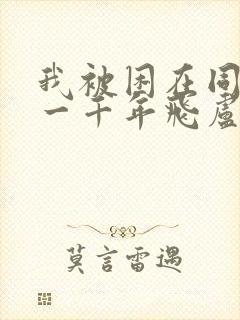 我被困在同
一千年飛盧
莫言雷遇